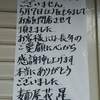 ございません
5月7日(日)をもちまして
お店を閉店させて
頂きました
お客様には長年の
ご愛顧に心から
感謝致します
本当にありがとう
ございました
麺屋 花星